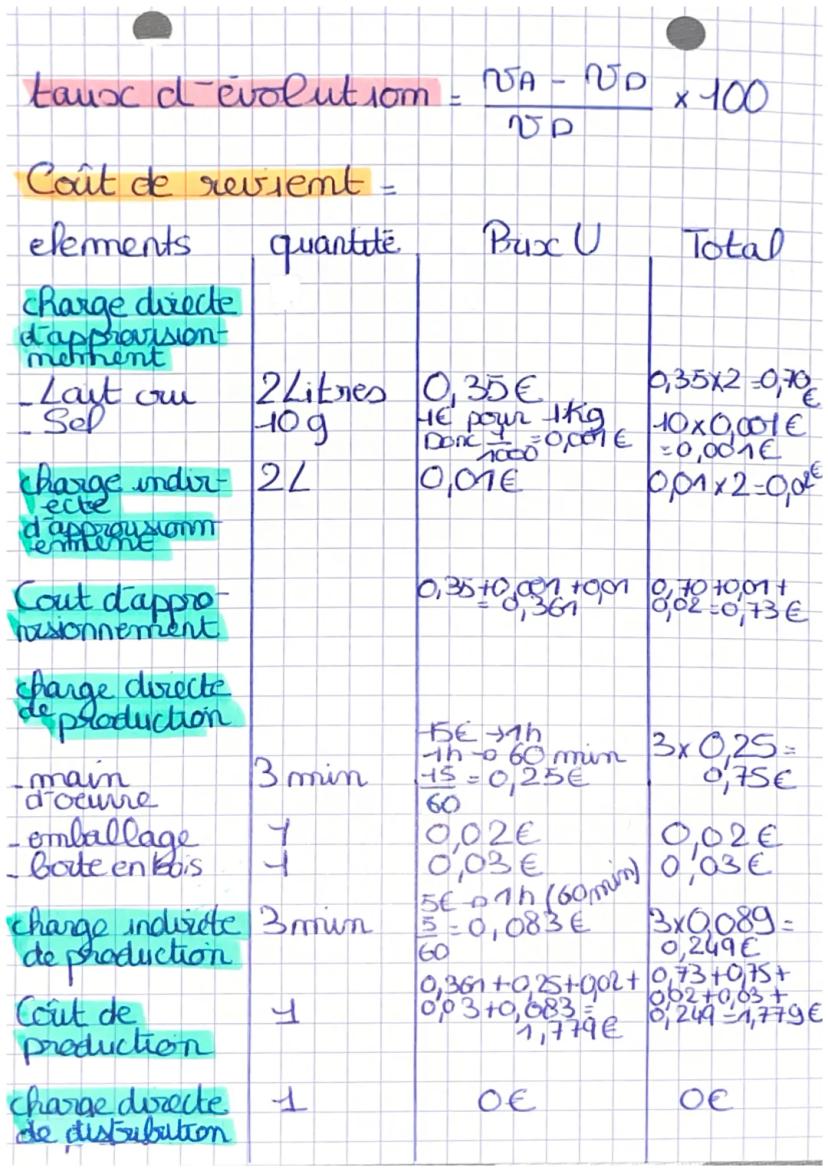 taux d'évolution = VA - VD / VD × 100
Coût de revient =
elements quantité Prix U Total
charge directe
d'approvision-
nement
- Lait cru 2 Litres 0,35€ 0,35×2 = 0,70€
- Sel 10g 1€ pour 1kg 10×0,001€
Donc 1/1000 = 0,001€ = 0,001€
charge indir- 2L 0,01€ 0,01×2=0,02€
ecte
d'approvisionn
ement
Cout d'appro- 0,35+0,001+0,01 0,70+0,01+
visionnement = 0,361 0,02=0,73€
charge directe
de production
15€ → 1h
1h → 60 min 3×0,25=
- main 3 min 15/60 = 0,25€ 0,75€
d'oeuvre
- emballage 1 0,02€ 0,02€
- boite en bois 1 0,03€ 0,03€
5€ → 1h (60min)
charge indirete 3 min 5/60 = 0,083€ 3×0,089=
de production 0,249€
0,361+0,25+0,02+ 0,73+0,75+
Coût de 1 0,03+0,083= 0,02+0,03+
production 1,779€ 0,249=1,779€
charge directe 1 0€ 0€
de distribution